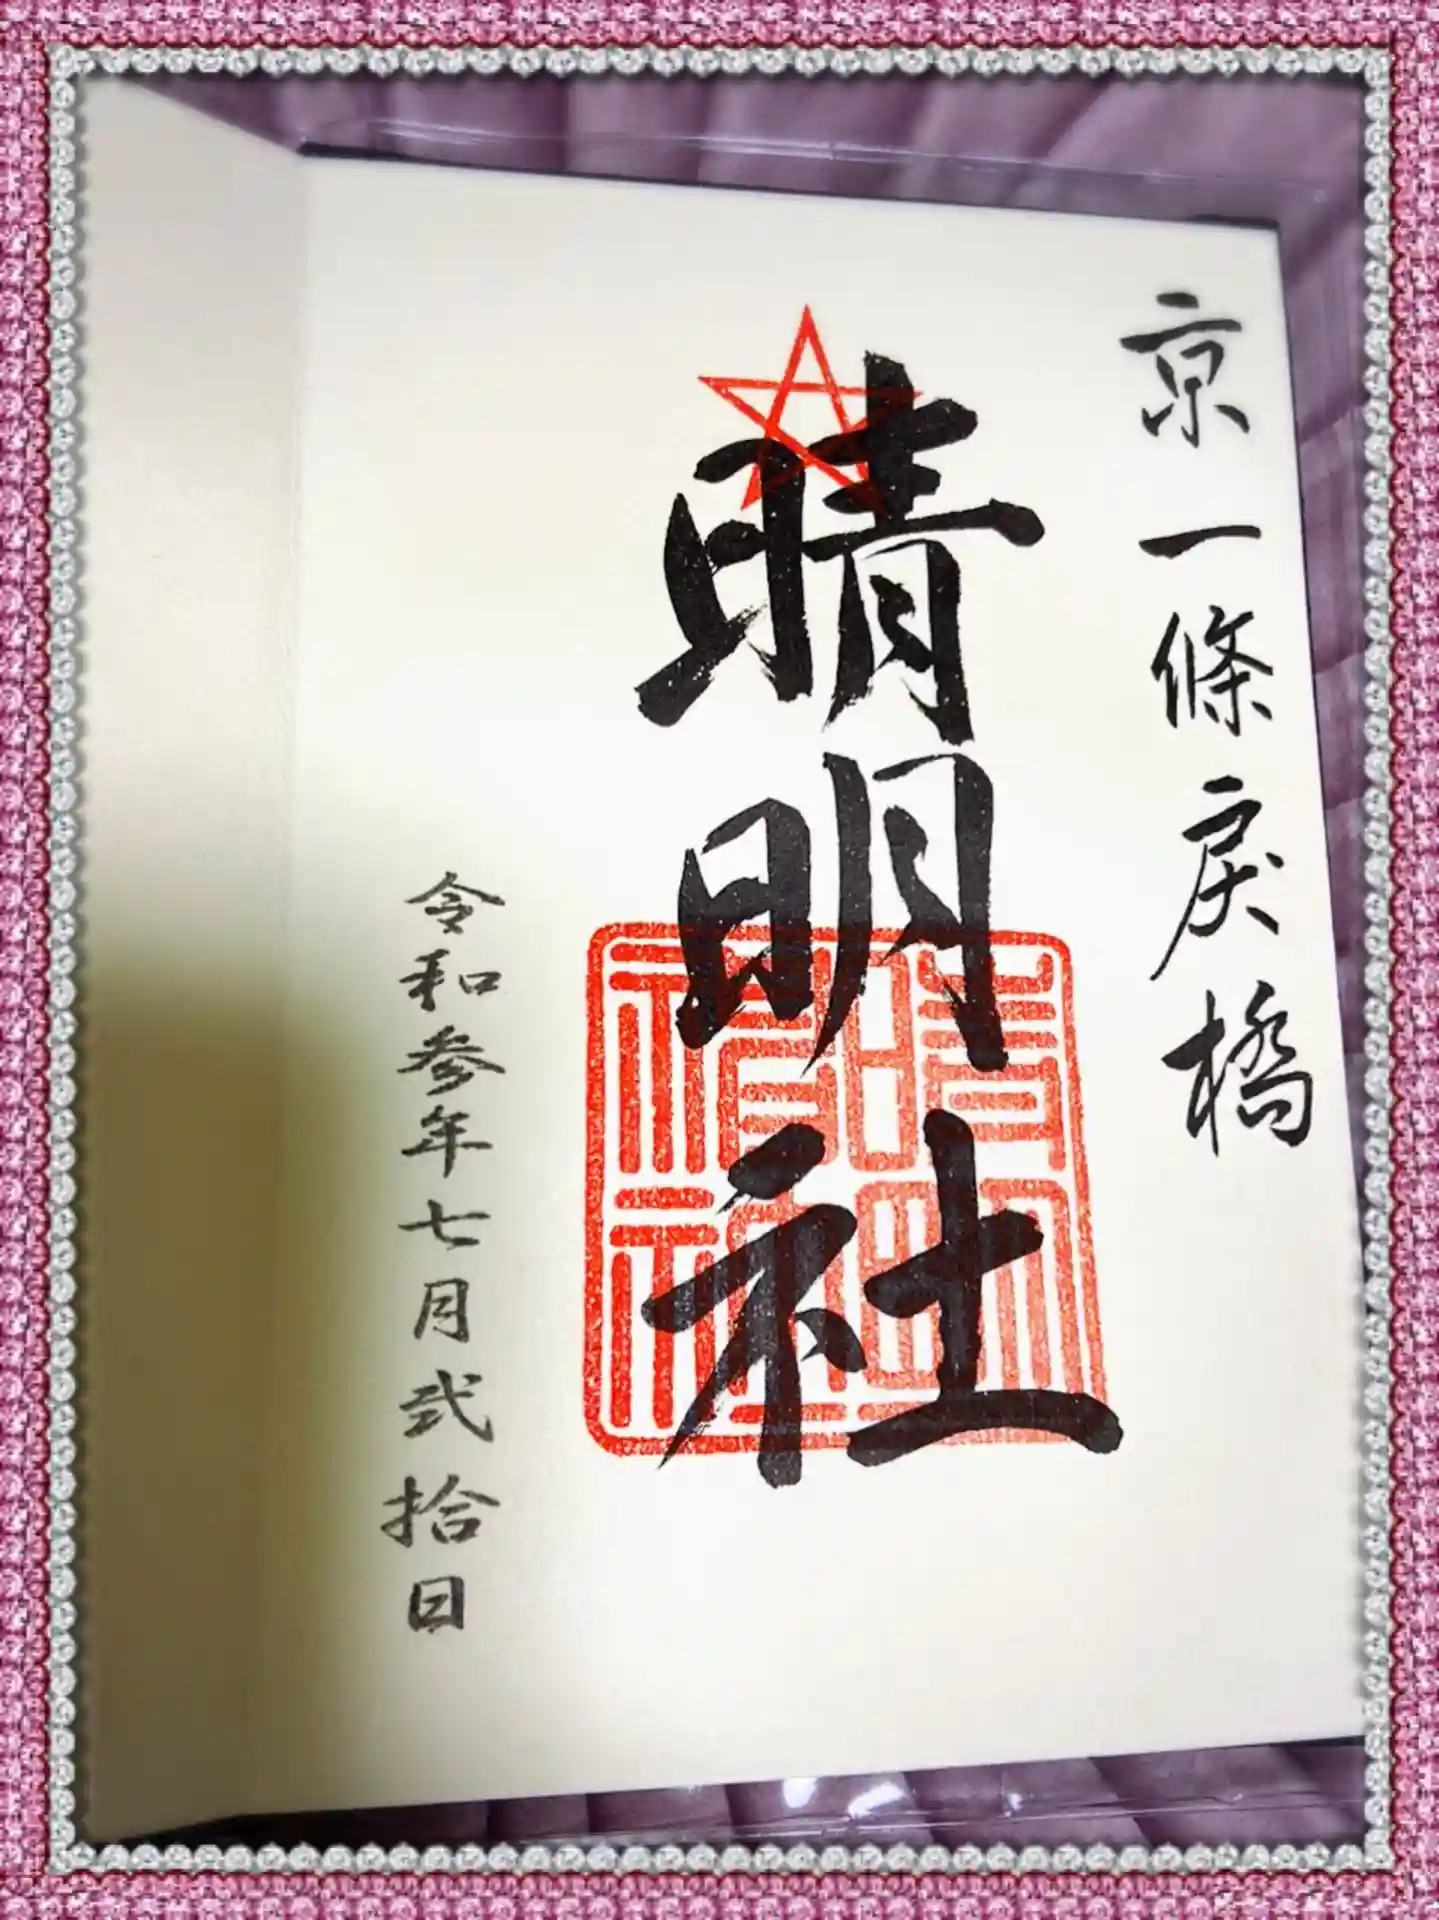 京一條戻橋
晴明社
晴明神社
令和参年七月弐拾日